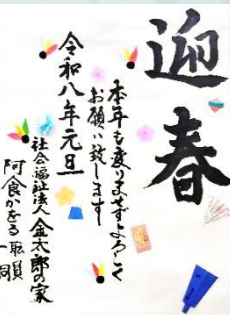 迎春
本年も変りませずよろしく
お願い致します
令和八年元旦
社会福祉法人金太郎の家
阿食かをる 職員
一同